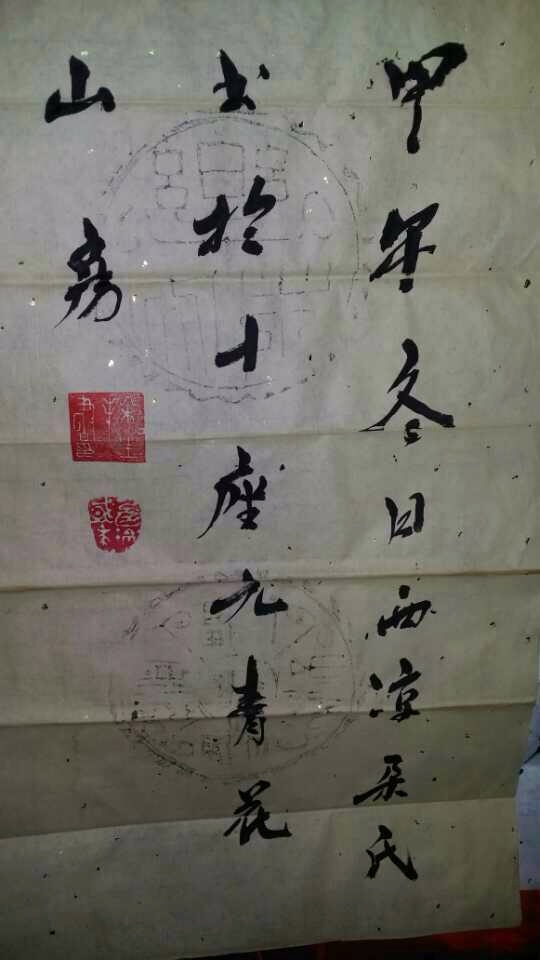 甲午冬日西凉朵氏
书於十座九青花
山房